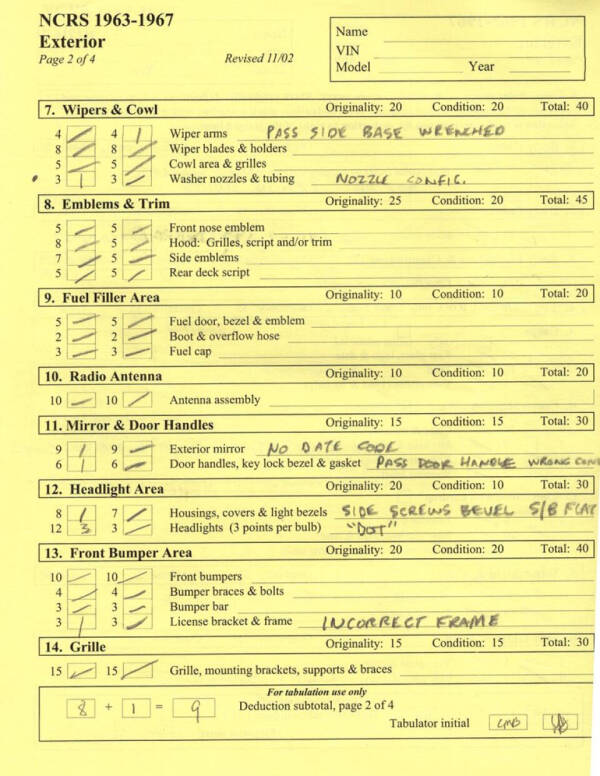 NCRS 1963-1967
Exterior
Page 2 of 4 Revised 11/02
Name
VIN
Model Year
7. Wipers & Cowl Originality: 20 Condition: 20 Total: 40
4 4 1 Wiper arms PASS SIDE BASE WRENCHED
8 8 Wiper blades & holders
5 5 Cowl area & grilles
3 1 3 Washer nozzles & tubing NOZZLE CONFIG.
8. Emblems & Trim Originality: 25 Condition: 20 Total: 45
5 5 Front nose emblem
8 5 Hood: Grilles, script and/or trim
7 5 Side emblems
5 5 Rear deck script
9. Fuel Filler Area Originality: 10 Condition: 10 Total: 20
5 5 Fuel door, bezel & emblem
2 2 Boot & overflow hose
3 3 Fuel cap
10. Radio Antenna Originality: 10 Condition: 10 Total: 20
10 10 Antenna assembly
11. Mirror & Door Handles Originality: 15 Condition: 15 Total: 30
9 1 9 Exterior mirror NO DATE CODE
6 1 6 Door handles, key lock bezel & gasket PASS DOOR HANDLE WRONG CON
12. Headlight Area Originality: 20 Condition: 10 Total: 30
8 1 7 Housings, covers & light bezels SIDE SCREWS BEVEL S/B FLAT
12 3 3 Headlights (3 points per bulb) "DOT"
13. Front Bumper Area Originality: 20 Condition: 20 Total: 40
10 10 Front bumpers
4 4 Bumper braces & bolts
3 3 Bumper bar
3 1 3 License bracket & frame INCORRECT FRAME
14. Grille Originality: 15 Condition: 15 Total: 30
15 15 Grille, mounting brackets, supports & braces
For tabulation use only
8 + 1 = 9 Deduction subtotal, page 2 of 4
Tabulator initial